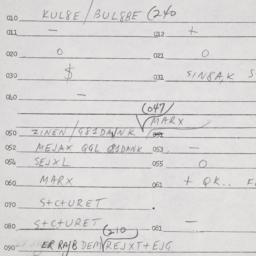 010 KUL8E/BUL8BE (240
011 — 012 +
020 0 021 0
030 $ 031 SIN8A,K S
040 —
(047/
050 ZINEN/G81DANK √MARX
052 MEJAX GGL 81DANK 053 —
054 SEJXL 055 0
060 MARX 061 + QK..
070 S+C+URET
080 S+C+URET 081 —
(210
090 ER RA/B DEM/REJXT+EJG